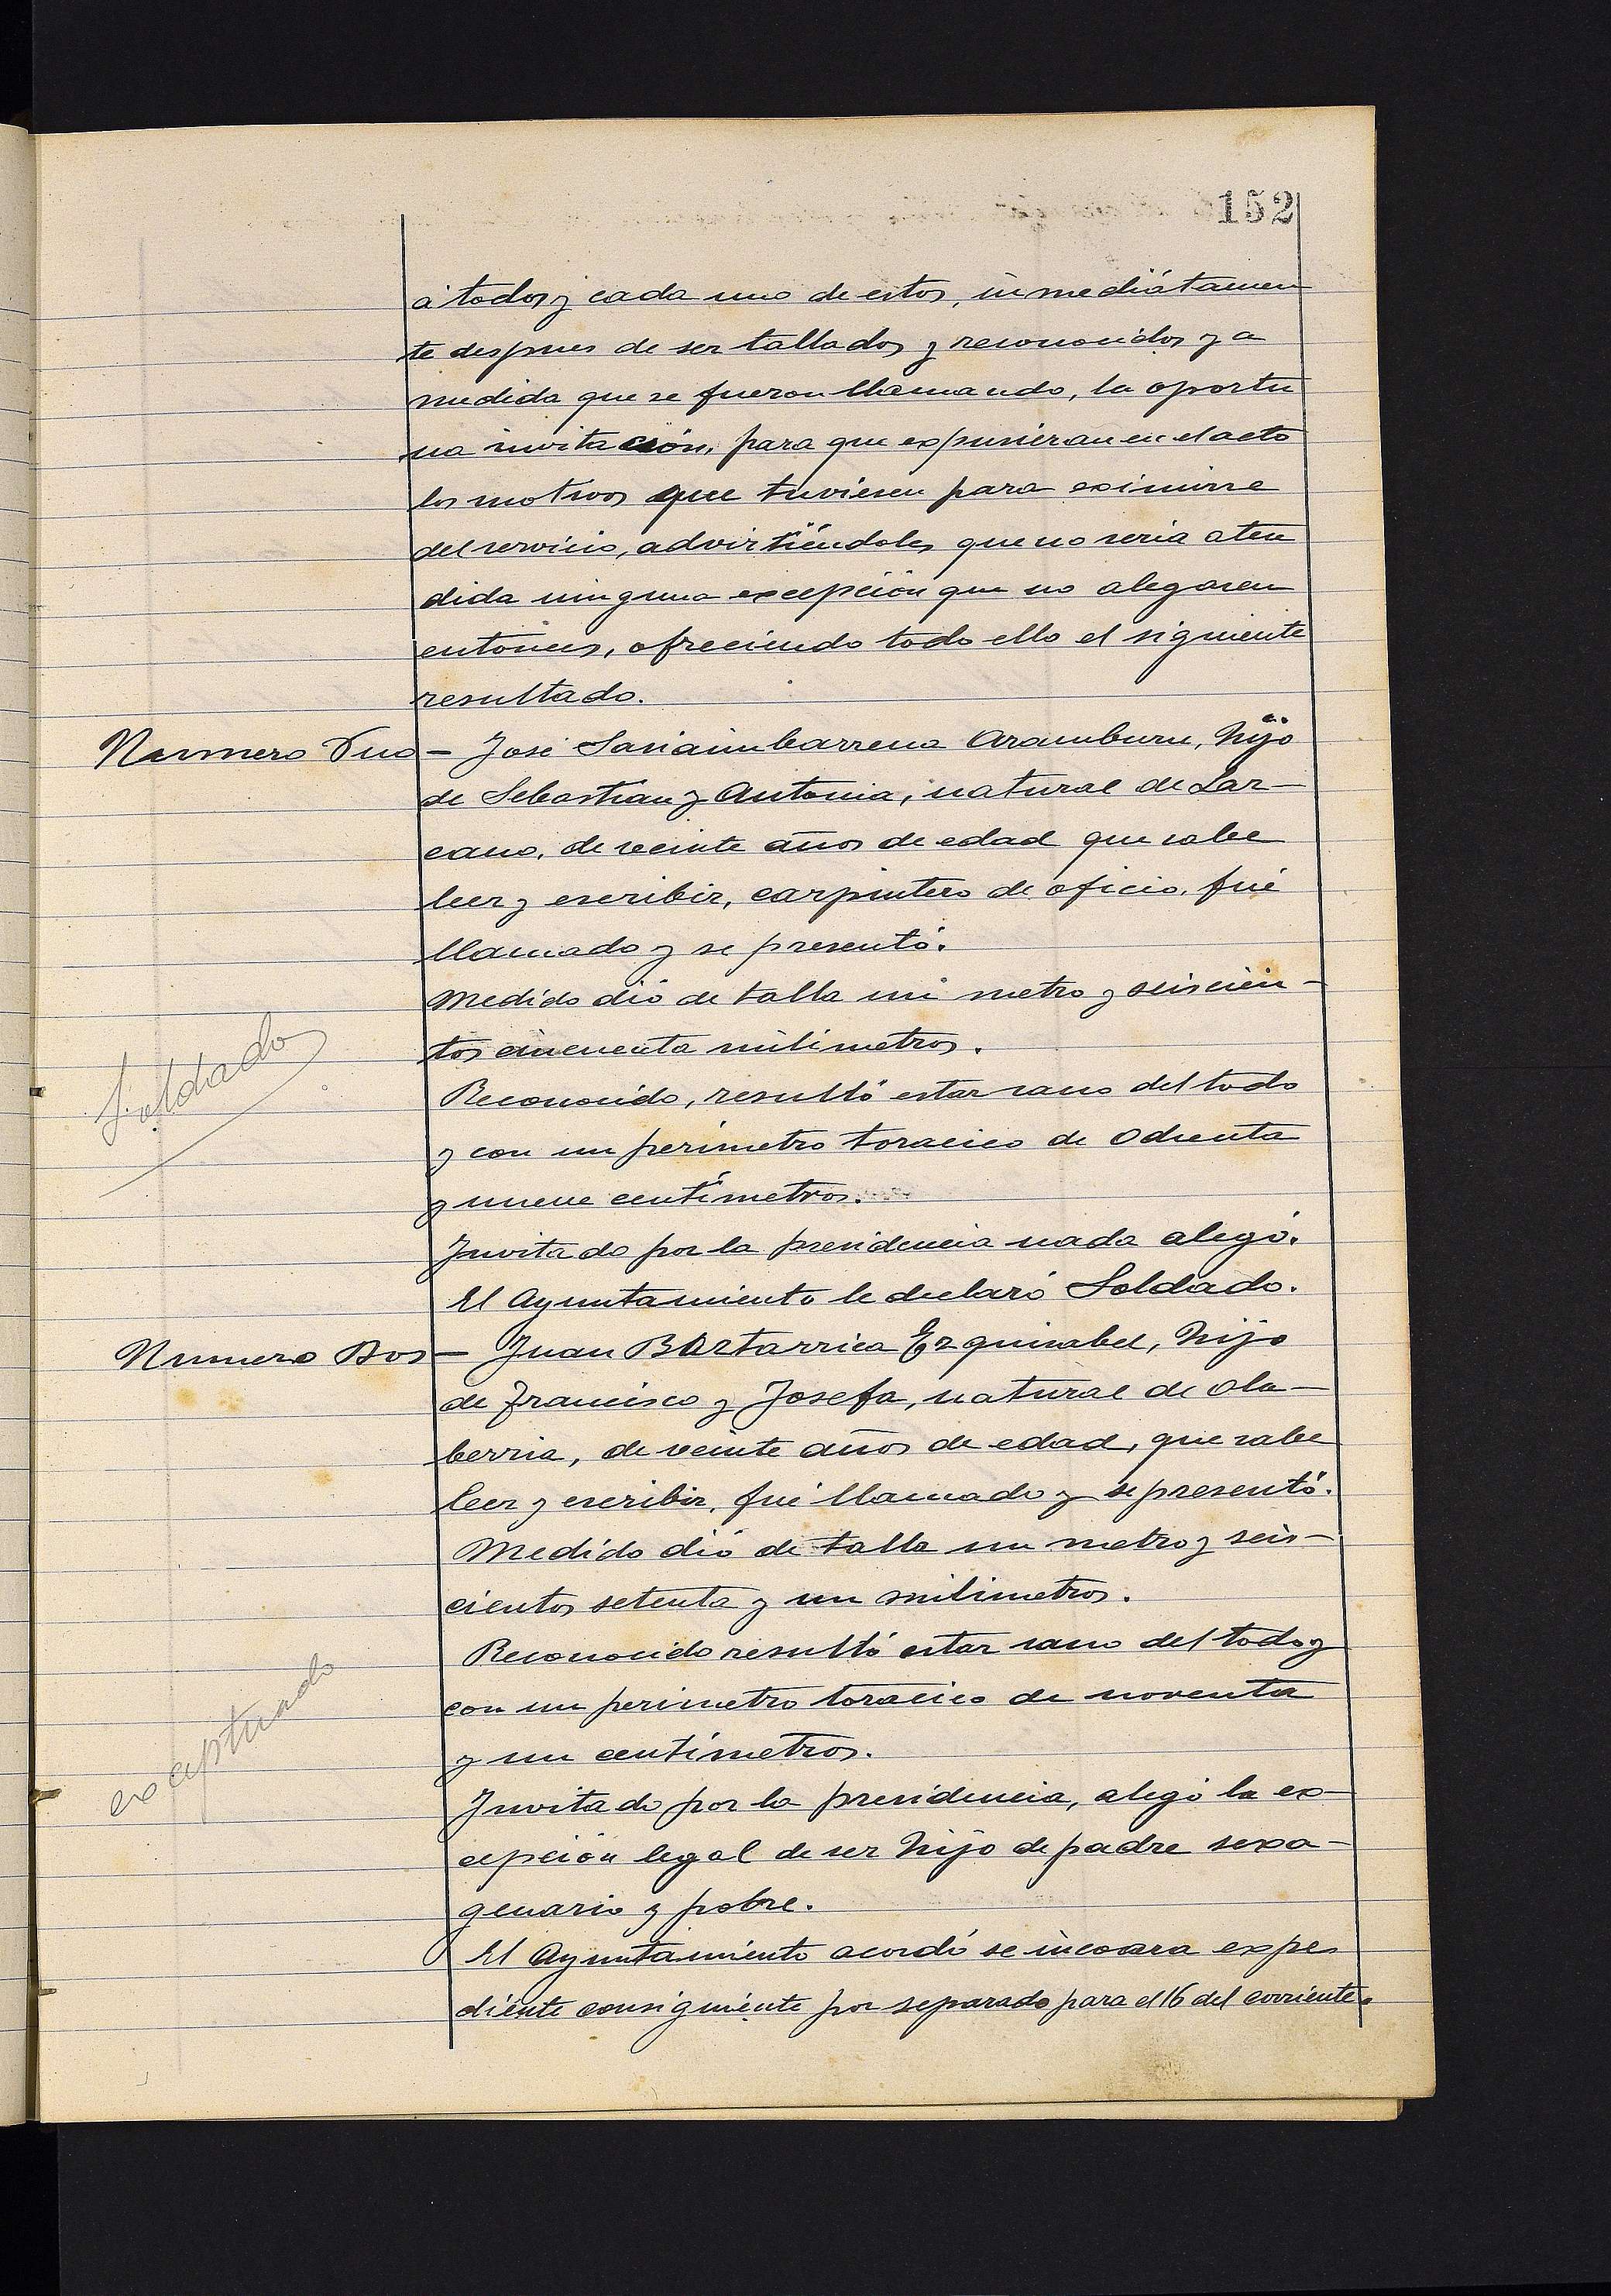 152
á todos y cada uno de estos, inmediátamen
te despues de ser tallados y reconocidos y a
medida que se fueron llamando, la oportu
na invitación, para que expusieran en el acto
los motivos que tuviesen para eximirse
del servicio, advirtiéndoles que no seria aten
dida ninguna excepción que no alegasen
entonces, ofreciendo todo ello el siguiente
resultado.
Numero Uno - José Sasiaimbarrena Aramburu, hijo
de Sebastian y Antonia, natural de Laz-
cano, de veinte años de edad que sabe
leer y escribir, carpintero de oficio, fué
llamado y se presentó.
Medido dió de talla un metro y seiscien-
tos cincuenta milimetros.
Soldado
Reconocido, resultó estar sano del todo
y con un perimetro toracico de Ochenta
y nueve centímetros.
Invitado por la presidencia nada alegó.
El Ayuntamiento le declaró Soldado.
Numero Dos - Juan B Artarrica Ezquisabel, hijo
de Francisco y Josefa, natural de Ola-
berria, de veinte años de edad, que sabe
leer y escribir, fué llamado y se presentó.
Medido dió de talla un metro y seis-
cientos setenta y un milimetros.
Reconocido resultó estar sano del todo y
con un perimetro toracico de noventa
y un centímetros.
exceptuado
Invitado por la presidencia, alegó la ex-
cepción legal de ser hijo de padre sexa-
genario y pobre.
El Ayuntamiento acordó se incoara expe
diente consiguiente por separado para el 16 del corriente.